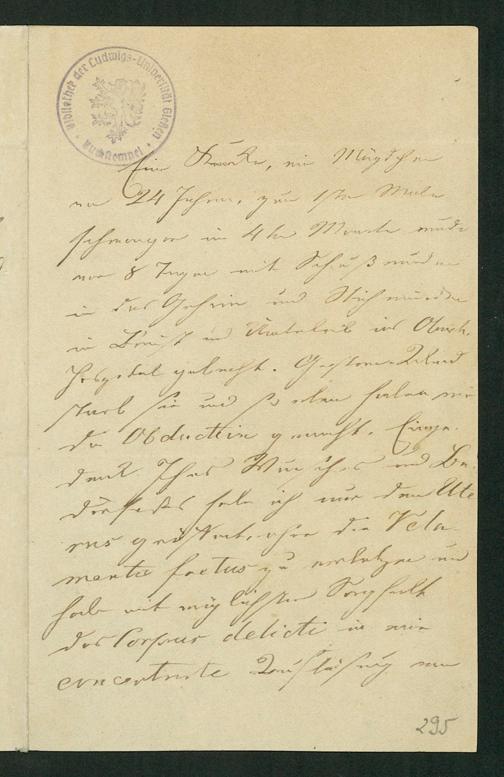 Bibliothek der Ludwigs-Universität Gießen
Eine Kranke, ein Mädchen
von 24 Jahren, zum 1ten Male
schwanger im 4ten Monate wurde
vor 8 Tagen mit Schußwunden
in das Gehirn und Stichwunden
in Brust und Unterleib ins
Hospital gebracht. Gestern Abend
starb sie und so eben haben wir
die Obduction gemacht. Einge-
denk Ihres Wunsches und Be-
dürfnisses habe ich nur den Ute-
rus geöffnet, ohne die Vela-
menta foetus zu verletzen und
habe mit möglichster Sorgfalt
das Corpus delicti in eine
concentrirte Auflösung von
295